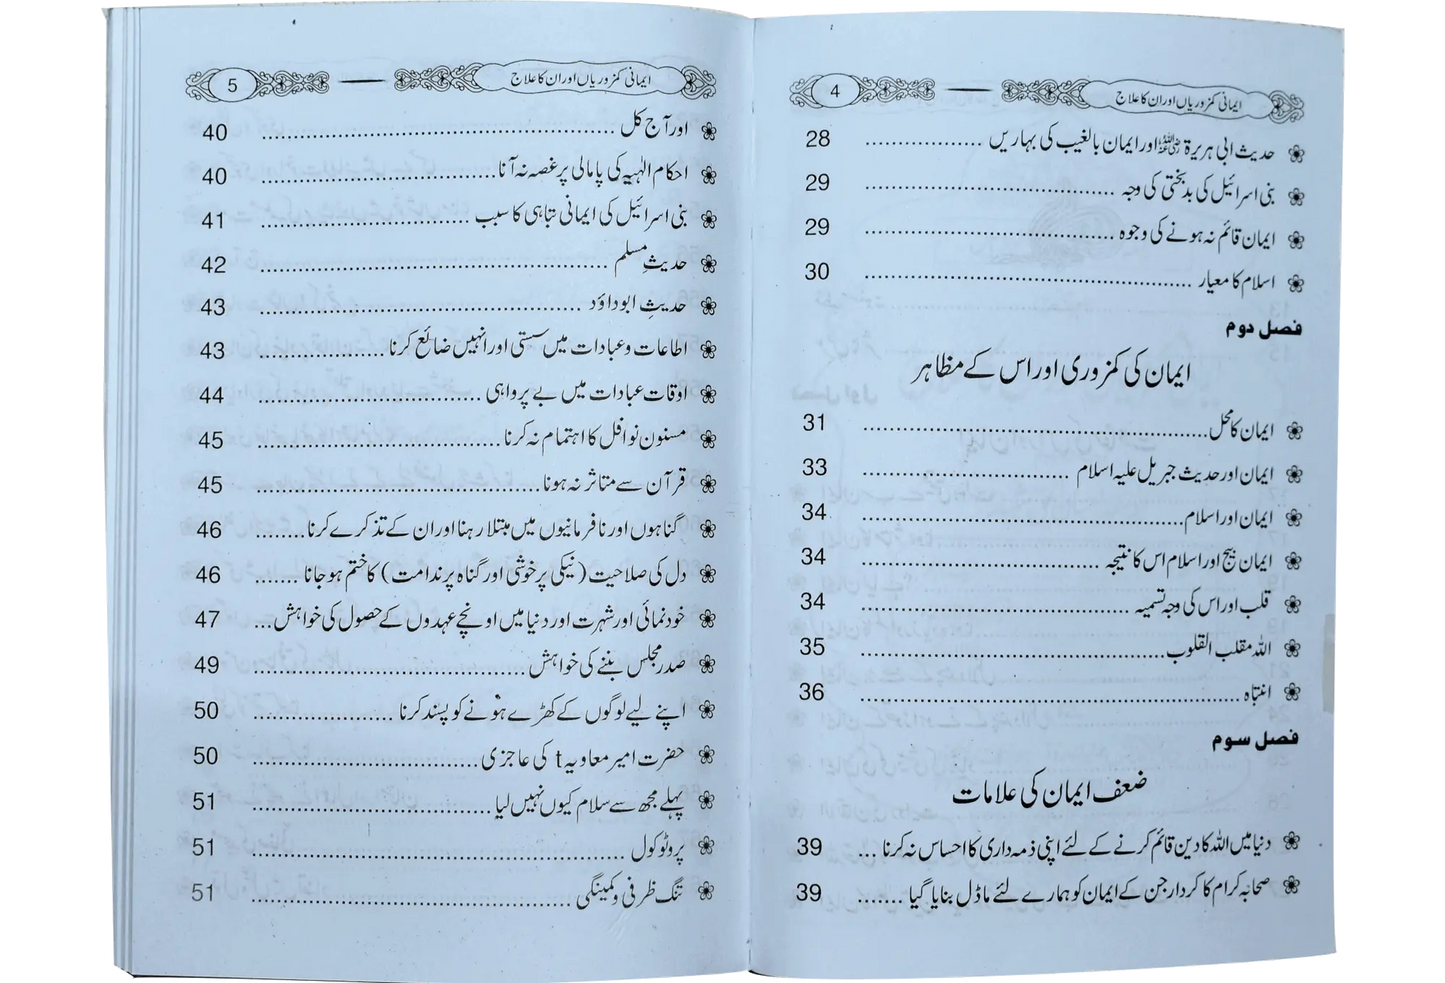 ایمانی کمزوریاں اور ان کا علاج 4
حدیث ابی ہریرۃ رضی اللہ عنہ اور ایمان بالغیب کی بہاریں ................ 28
بنی اسرائیل کی بدبختی کی وجہ ................ 29
ایمان قائم نہ ہونے کی وجوہ ................ 29
اسلام کا معیار ................ 30
فصل دوم
ایمان کی کمزوری اور اس کے مظاہر
ایمان کا محل ................ 31
ایمان اور حدیث جبریل علیہ اسلام ................ 33
ایمان اور اسلام ................ 34
ایمان بیج اور اسلام اس کا نتیجہ ................ 34
قلب اور اس کی وجہ تسمیہ ................ 34
اللہ مقلب القلوب ................ 35
انتباہ ................ 36
فصل سوم
ضعف ایمان کی علامات
دنیا میں اللہ کا دین قائم کرنے کے لئے اپنی ذمہ داری کا احساس نہ کرنا ... 39
صحابہ کرام کا کردار جن کے ایمان کو ہمارے لئے ماڈل بنایا گیا ....... 39
ایمانی کمزوریاں اور ان کا علاج 5
اور آج کل ................ 40
احکام الٰہیہ کی پامالی پر غصہ نہ آنا ................ 40
بنی اسرائیل کی ایمانی تباہی کا سبب ................ 41
حدیثِ مسلم ................ 42
حدیثِ ابو داؤد ................ 43
اطاعات و عبادات میں سستی اور انہیں ضائع کرنا ................ 43
اوقات عبادات میں بے پرواہی ................ 44
مسنون نوافل کا اہتمام نہ کرنا ................ 45
قرآن سے متاثر نہ ہونا ................ 45
گناہوں اور نافرمانیوں میں مبتلا رہنا اور ان کے تذکرے کرنا ........ 46
دل کی صلاحیت (نیکی پر خوشی اور گناہ پر ندامت) کا ختم ہو جانا ........ 46
خودنمائی اور شہرت اور دنیا میں اونچے عہدوں کے حصول کی خواہش ... 47
صدر مجلس بننے کی خواہش ................ 49
اپنے لیے لوگوں کے کھڑے ہونے کو پسند کرنا ................ 50
حضرت امیر معاویہ t کی عاجزی ................ 50
پہلے مجھ سے سلام کیوں نہیں لیا ................ 51
پروٹوکول ................ 51
تنگ ظرفی و کمینگی ................ 51